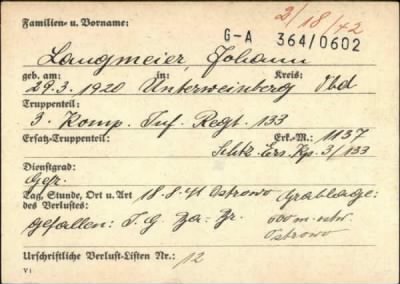 Familien- u. Vorname:
2/18/42
G-A 364/0602
Langmeier, Johann
geb. am: in: Kreis:
29.3.1920 Unterweinberg Obd
Truppenteil:
3. Komp. Inf. Regt. 133
Ersatz-Truppenteil: Erk.-M.: 1137
Schtz. Ers. Kp. 3/133
Dienstgrad:
Gefr.
Tag, Stunde, Ort u. Art 18.8.41 Ostrowo Grablage:
des Verlustes:
gefallen: I.G.
Ostrowo
Urschriftliche Verlust-Listen Nr.: 12
V 1